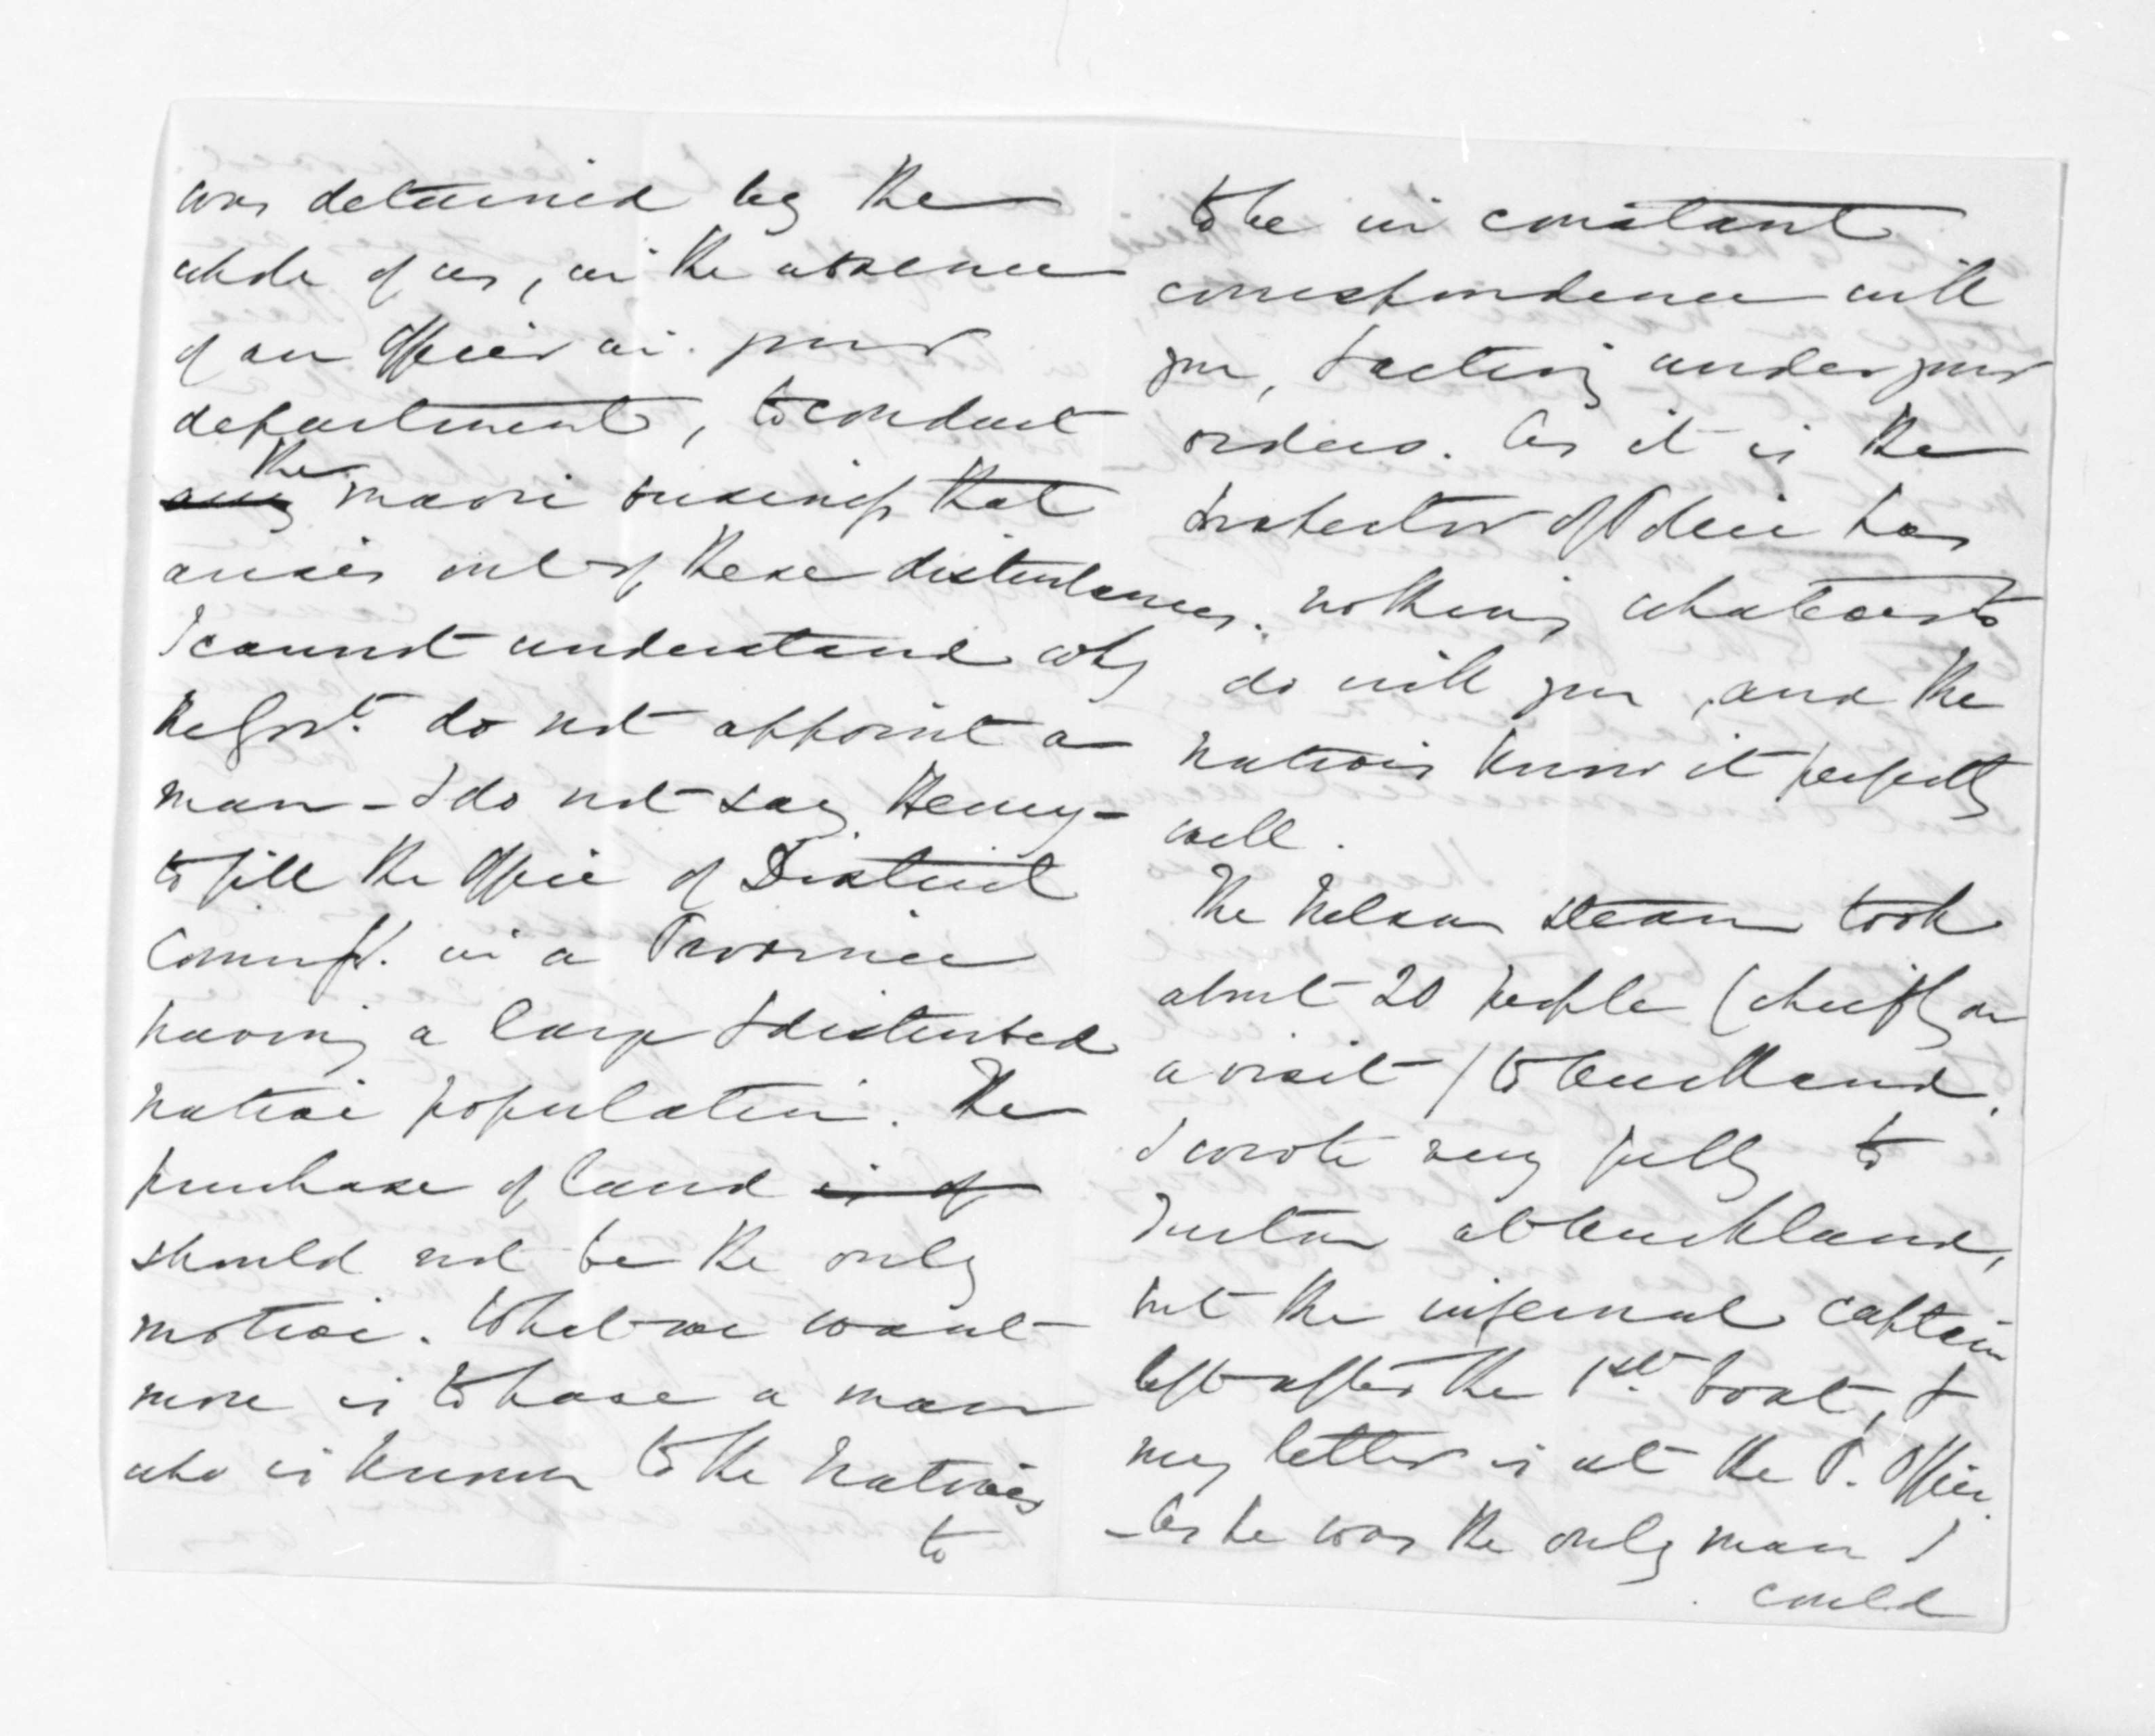 was detained by the
whole of us, in the absence
of an Officer in your
department, to conduct
any the maori business that
arises out of these disturbances.
I cannot understand why
the Govt. do not appoint a
man - I do not say Henry -
to fill the Office of District
Commr. in a Province
having a large & disturbed
native population. The
purchase of land is of
should not be the only
motive. What we want
more is to have a man
who is known to the Natives
to
to be in constant
correspondence with
you, & acting under your
orders. As it is the
Inspector of Police has
nothing whatever to
do with you, and the
natives know it perfectly
well.
The Nelson steam took
about 20 people (chiefly on
a visit) to Auckland.
I wrote very fully to
at Auckland,
but the infernal captain
left after the 1st. boat, &
my letter is at the P. Office.
- As he was the only man I
could